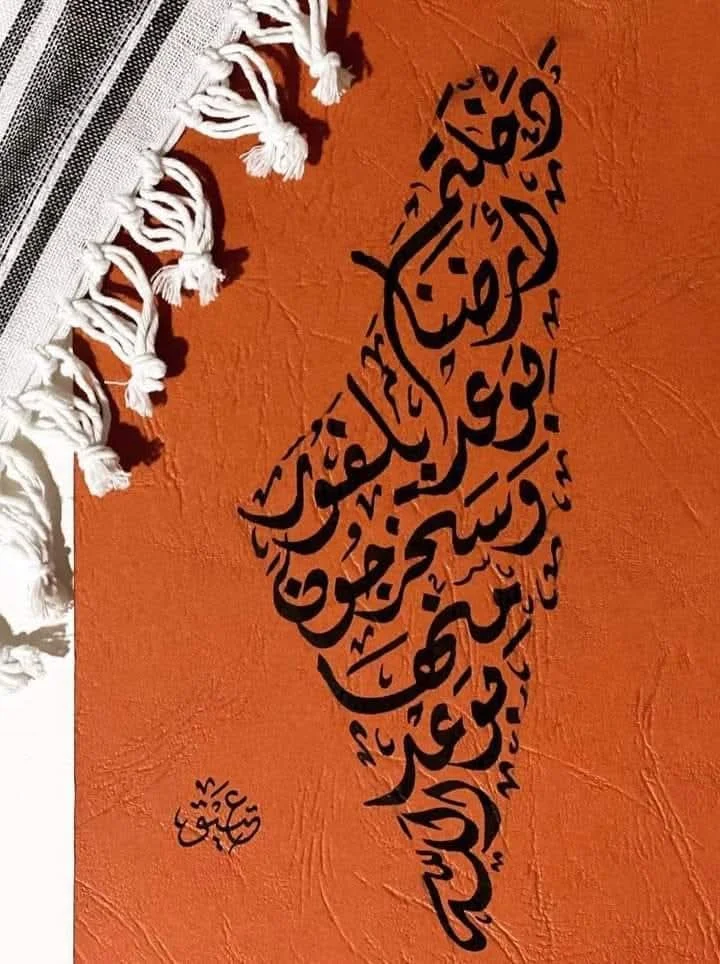 دَخَلتُم
أَرضنا
بِوَعد
بلفُور
وَسَتَخرُجُون
مِنها
بِوَعدِ
اللّه
عتيق